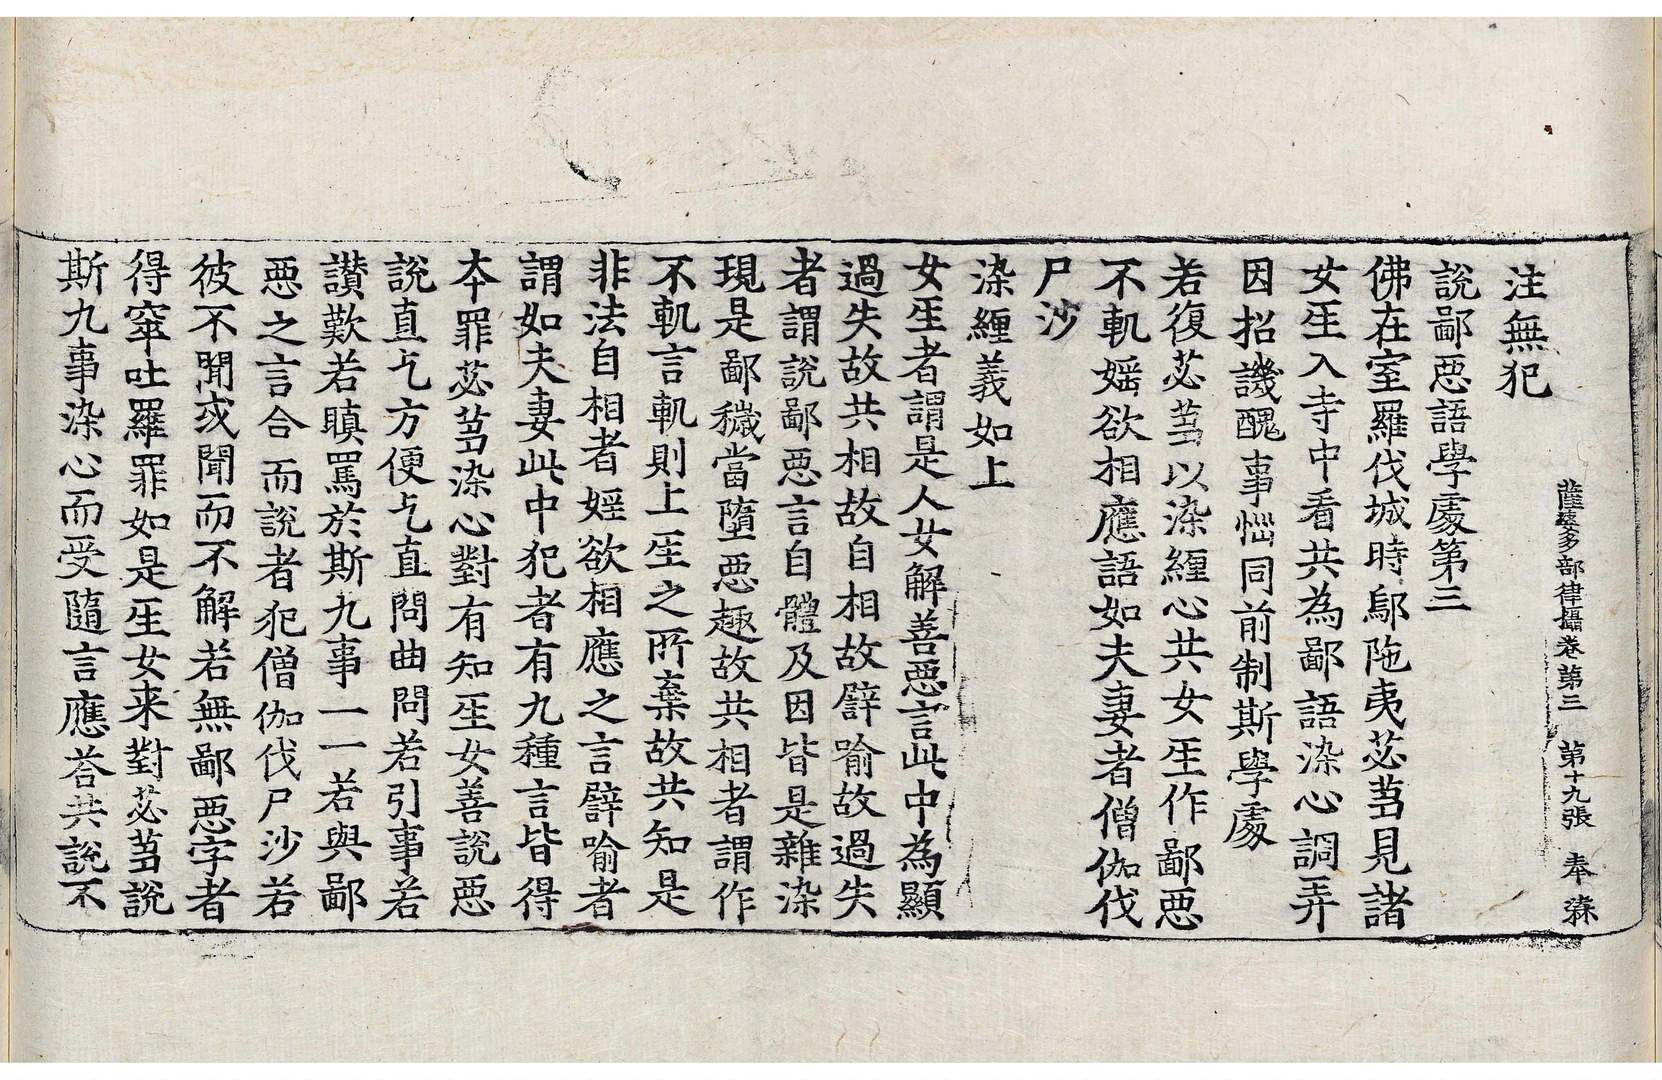 薩婆多部律攝卷第三　第十九張　奉
注無犯
說鄙惡語學處第三
佛在室羅伐城時鄔陁夷苾芻見諸
女生入寺中看共為鄙語染心調弄
因招譏醜事惱同前制斯學處
若復苾芻以染纏心共女生作鄙惡
不軌婬欲相應語如夫妻者僧伽伐
尸沙
染纏義如上
女生者謂是人女解善惡言此中為顯
過失故共相故自相故辟喻故過失
者謂說鄙惡言自體及因皆是雜染
現是鄙穢當墮惡趣故共相者謂作
不軌言軌則上生之所棄故共知是
非法自相者婬欲相應之言辟喻者
謂如夫妻此中犯者有九種言皆得
本罪苾芻染心對有知生女善說惡
說直乞方便乞直問曲問若引事若
讚歎若瞋罵於斯九事一一若與鄙
惡之言合而說者犯僧伽伐尸沙若
彼不聞或聞而不解若無鄙惡字者
得窣吐羅罪如是生女来對苾芻說
斯九事染心而受隨言應荅共說不